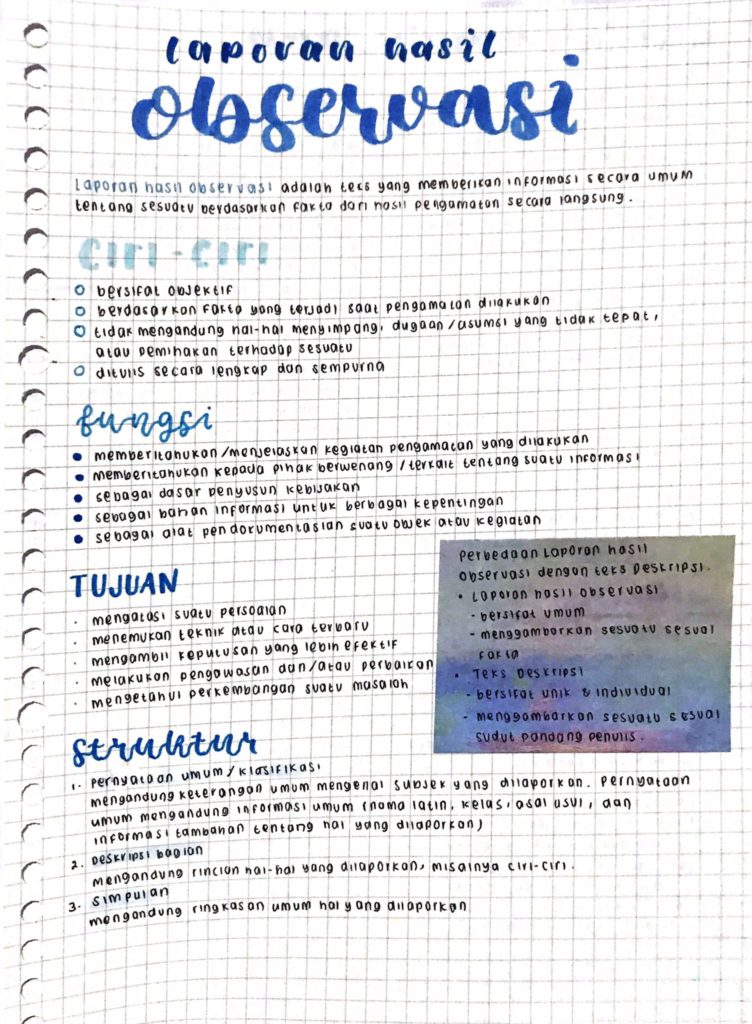 laporan hasil
observasi
Laporan hasil observasi adalah teks yang memberikan informasi secara umum
tentang sesuatu berdasarkan fakta dari hasil pengamatan secara langsung.
CIRI-CIRI
bersifat objektif
berdasarkan fakta yang terjadi saat pengamatan dilakukan
tidak mengandung hal-hal menyimpang, dugaan/asumsi yang tidak tepat,
atau pemihakan terhadap sesuatu
ditulis secara lengkap dan sempurna
fungsi
• memberitahukan/menjelaskan kegiatan pengamatan yang dilakukan
• memberitahukan kepada pihak berwenang/terkait tentang suatu informasi
• sebagai dasar penyusun kebijakan
• sebagai bahan informasi untuk berbagai kepentingan
• sebagai alat pendokumentasian suatu objek atau kegiatan
TUJUAN
· mengatasi suatu persoalan
· menemukan teknik atau cara terbaru
· mengambil keputusan yang lebih efektif
· melakukan pengawasan dan/atau perbaikan
· mengetahui perkembangan suatu masalah
Perbedaan Laporan hasil
observasi dengan teks Deskripsi.
• Laporan hasil observasi
- bersifat umum
- menggambarkan sesuatu sesuai
fakta
• Teks Deskripsi
- bersifat unik & individual
- menggambarkan sesuatu sesuai
sudut pandang penulis.
struktur
1. Pernyataan umum/klasifikasi
mengandung keterangan umum mengenai subjek yang dilaporkan. Pernyataan
umum mengandung informasi umum (nama latin, kelas, asal usul, dan
informasi tambahan tentang hal yang dilaporkan)
2. Deskripsi bagian
mengandung rincian hal-hal yang dilaporkan, misalnya ciri-ciri.
3. simpulan
mengandung ringkasan umum hal yang dilaporkan